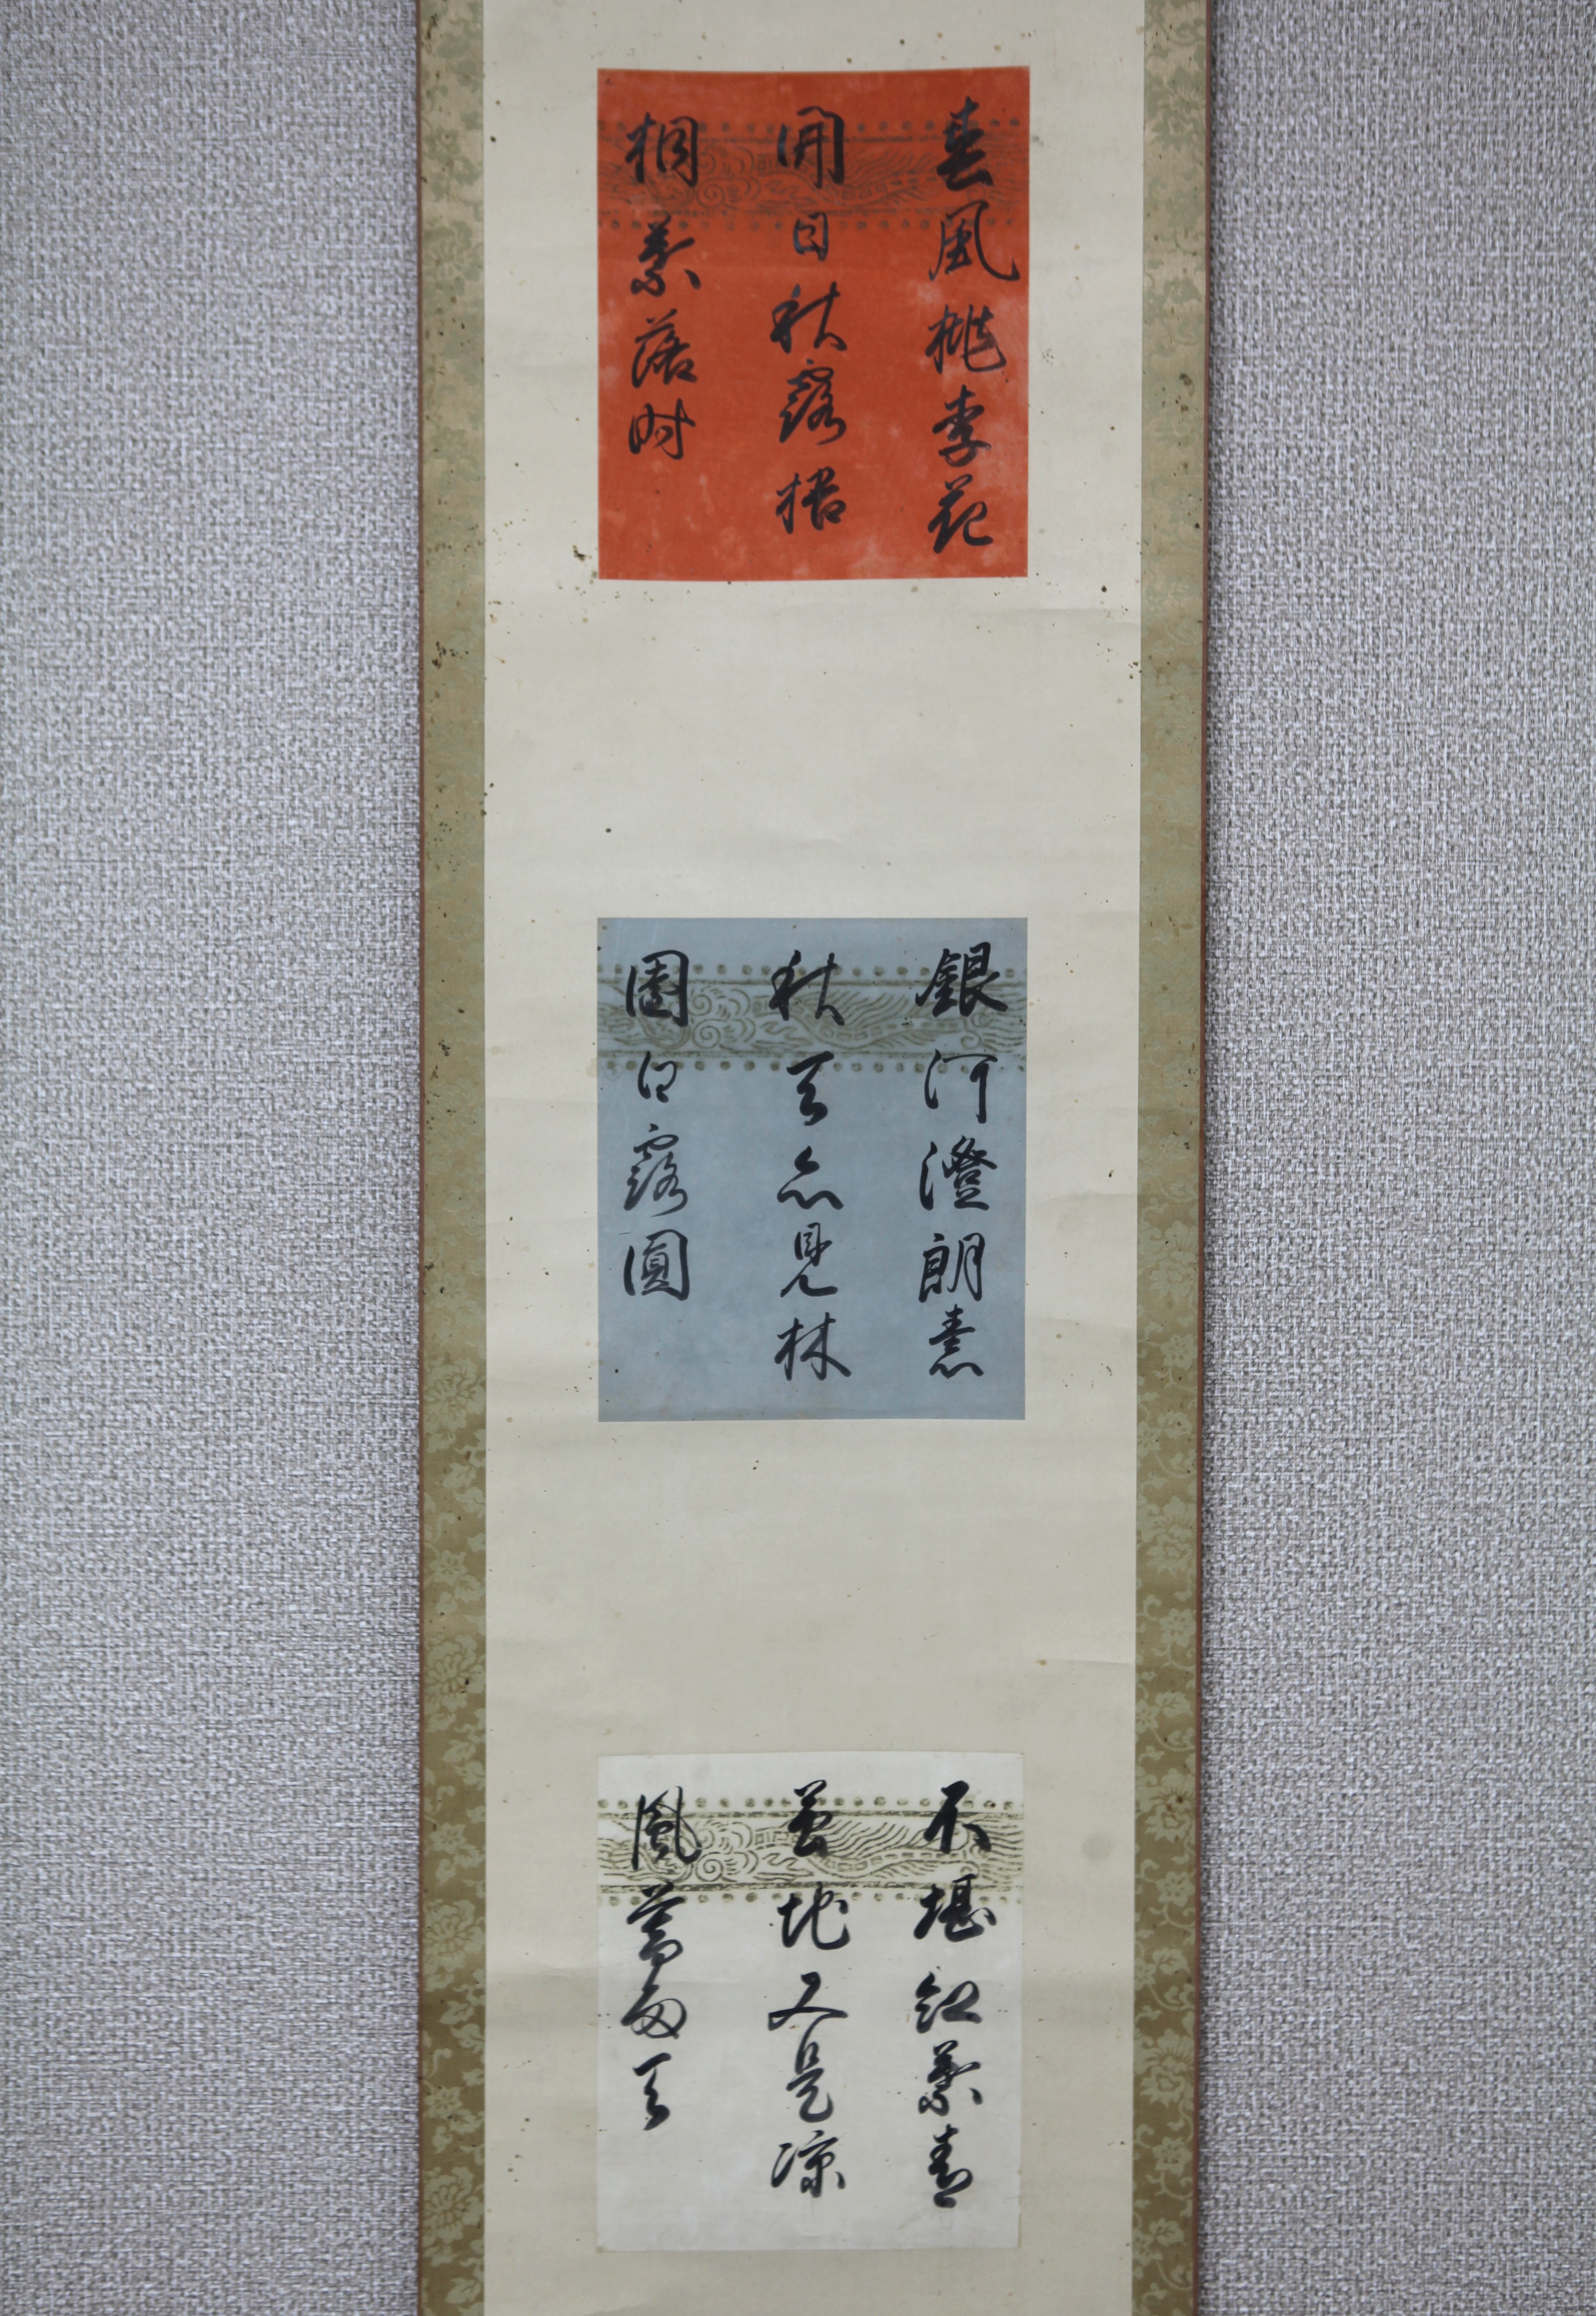 春風桃李花
開日秋露梧
桐葉落時
銀河澄朗素
秋天亦見林
園白露圓
不堪紅葉青
苔地又是涼
風暮雨天